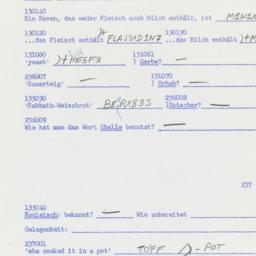 131140
Ein Essen, das weder Fleisch noch Milch enthält, ist
130120 130130
...das Fleisch enthält FLAJSHDIN7 ...das Milch enthält
131060 131061
'yeast': )+HE5F3 ) Gerbe? —
236007 131070
'Sauerteig' — ) Urbah? —
135030 236008
'Sabbath-Weissbrot' BERX83S ) Datscher? —
236009
Wie hat man das Wort Challe benutzt? —
237
135040
Kouleisch: bekannt? — Wie zubereitet
Gelegenheit:
237001
'she cooked it in a pot' TOPF )- POT